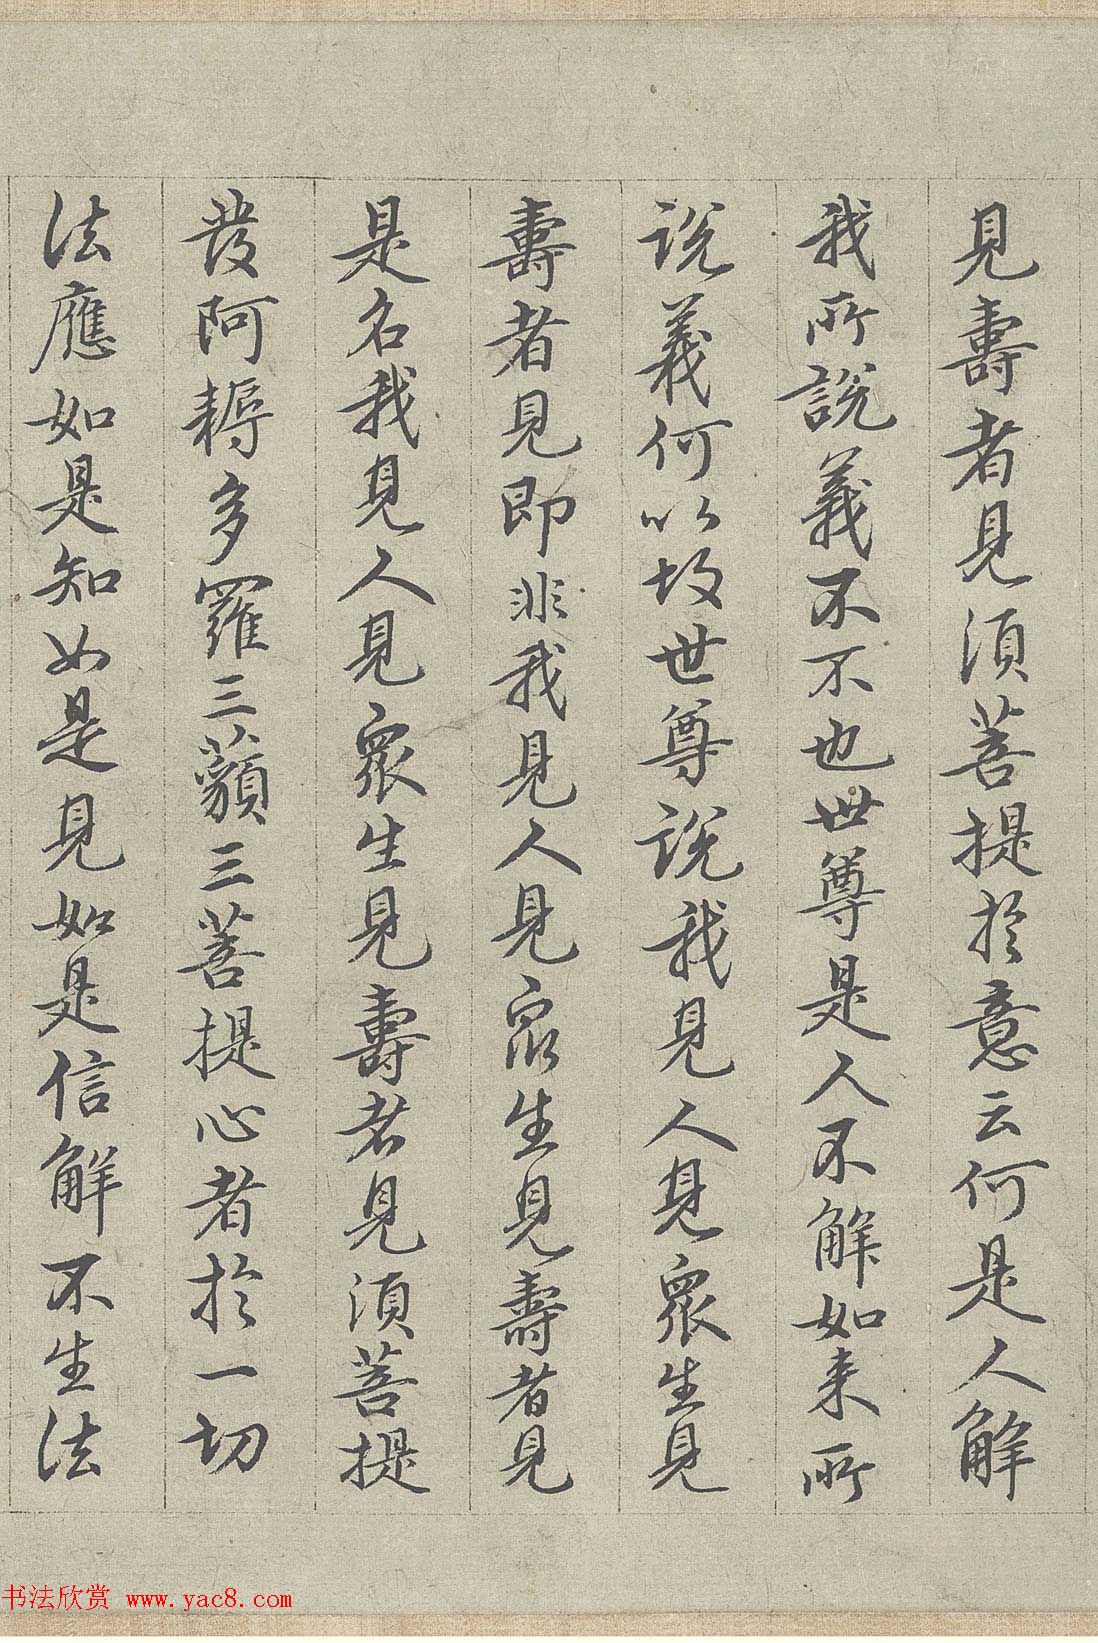 見壽者見須菩提於意云何是人解
我所說義不不也世尊是人不解如来所
說義何以故世尊說我見人見眾生見
壽者見即非我見人見眾生見壽者見
是名我見人見眾生見壽者見須菩提
發阿耨多羅三藐三菩提心者於一切
法應如是知如是見如是信解不生法
书法欣赏 www.yac8.com